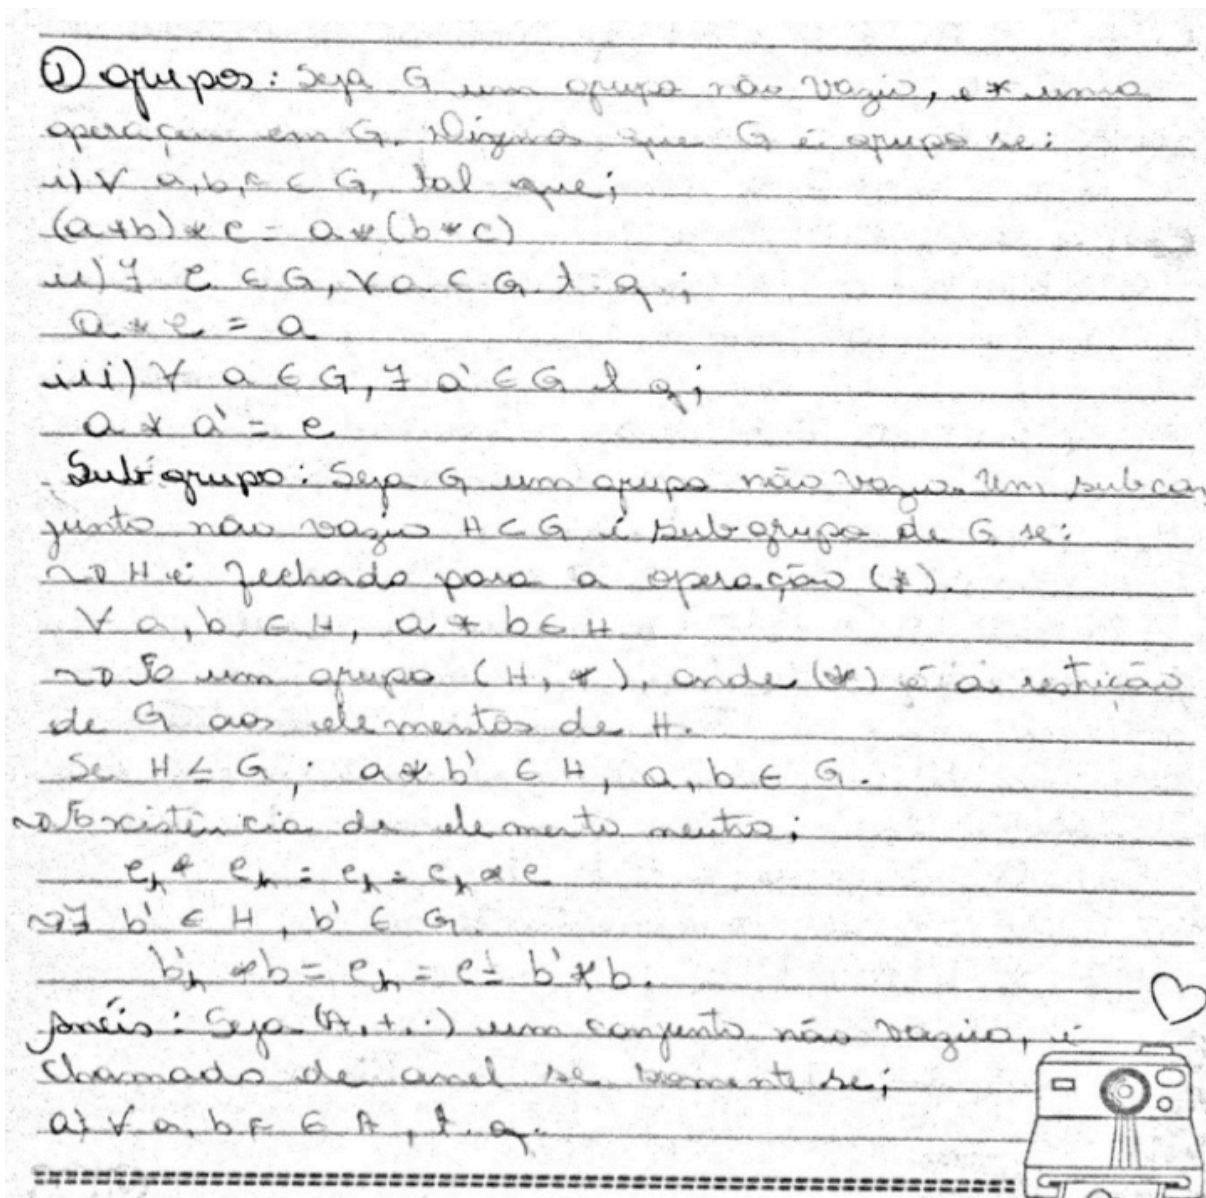 ① grupos: Seja G um grupo não vazio, e * uma
operação em G. Dizemos que G é grupo se:
i) ∀ a, b, c ∈ G, tal que;
(a*b)*c = a*(b*c)
ii) ∃ e ∈ G, ∀ a ∈ G t.q;
a * e = a
iii) ∀ a ∈ G, ∃ a' ∈ G t q;
a * a' = e
Subgrupo: Seja G um grupo não vazio. Um subcon
junto não vazio H ⊂ G é subgrupo de G se:
~> H é fechado para a operação (*).
∀ a, b ∈ H, a * b ∈ H
~> um grupo (H, *), onde (*) é a restrição
de G aos elementos de H.
Se H ≤ G; a * b' ∈ H, a, b ∈ G.
~> Existência de elemento neutro;
eₕ * eₕ = eₕ = eₕ * e
~> ∃ b' ∈ H, b' ∈ G.
b'ₕ * b = eₕ = e = b' * b.
Anéis: Seja (A, +, ·) um conjunto não vazio, é
chamado de anel se somente se;
a) ∀ a, b, c ∈ A, t.q.